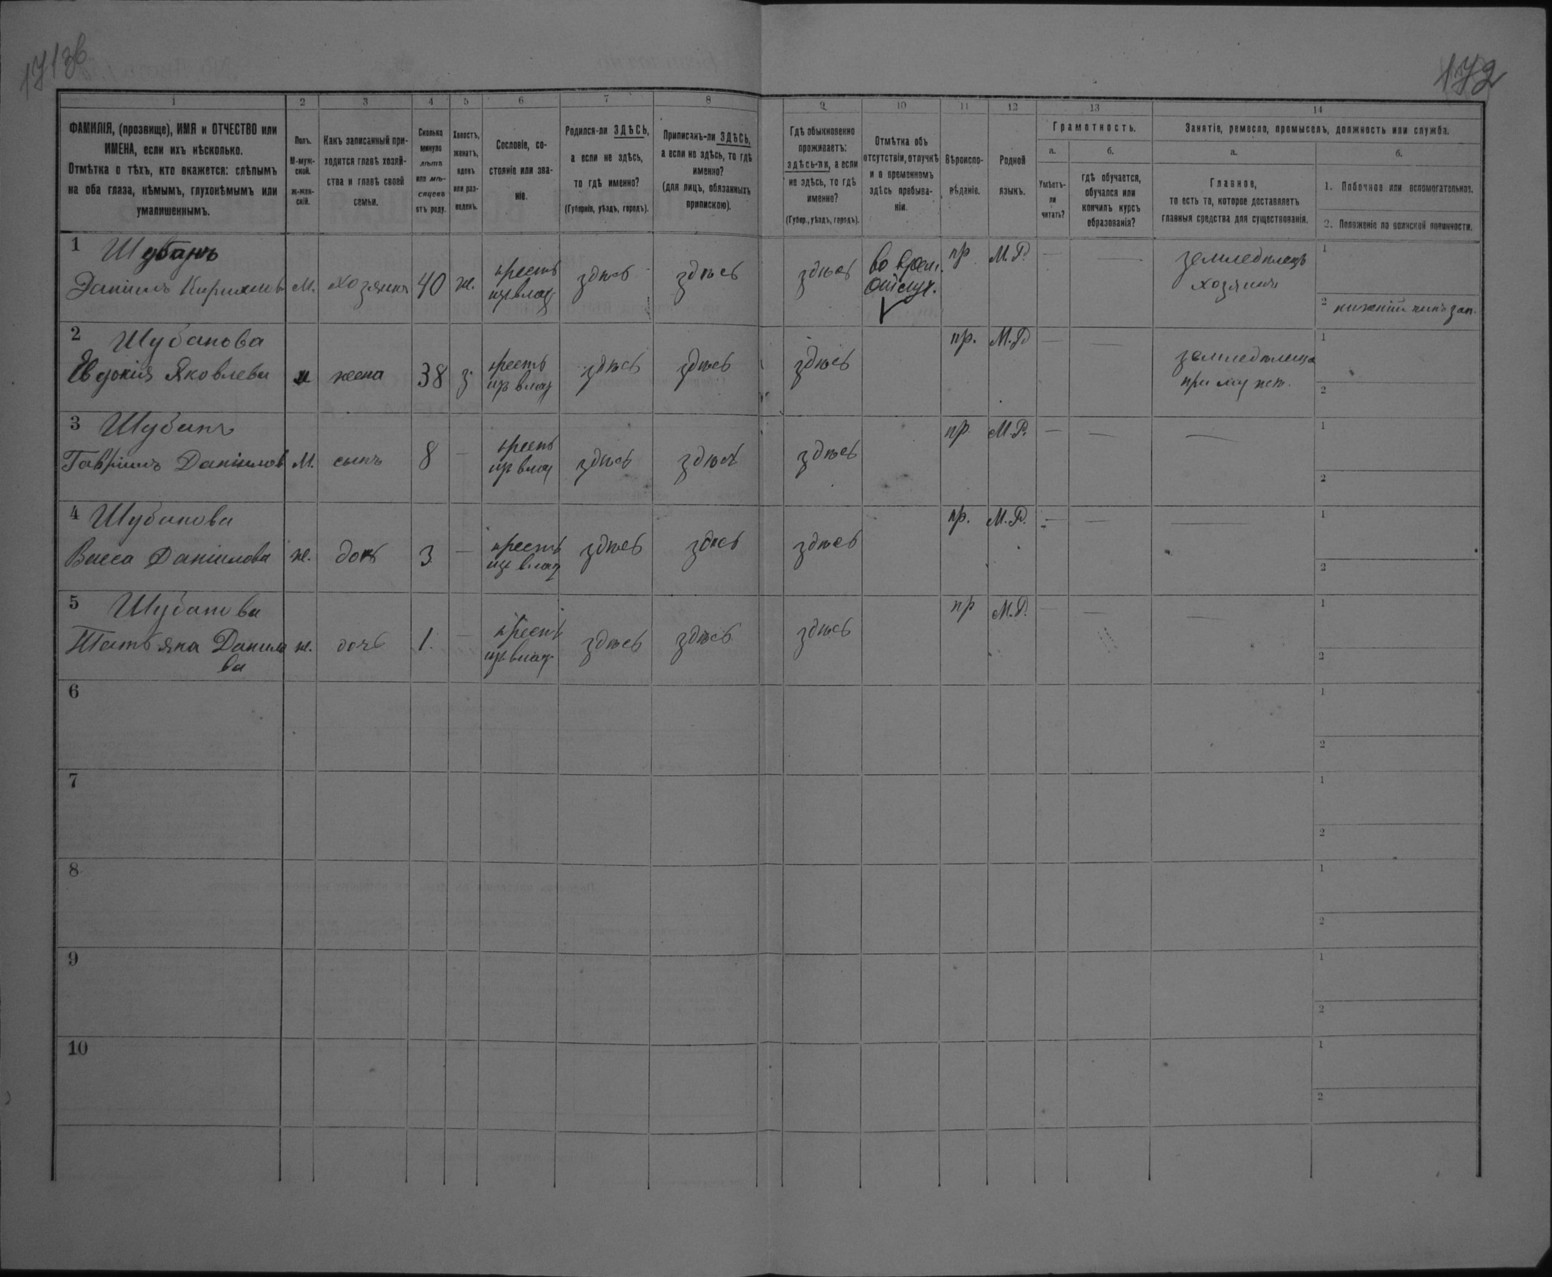 172
1 2 3 4 5 6 7 8 9 10 11 12 13 14
ФАМИЛІЯ, (прозвище), ИМЯ и ОТЧЕСТВО или
ИМЕНА, если ихъ нѣсколько.
Отмѣтка о тѣхъ, кто окажется: слѣпымъ
на оба глаза, нѣмымъ, глухонѣмымъ или
умалишеннымъ.
Полъ.
М-муж-
ской.
ж-жен-
скій.
Какъ записанный при-
ходится главѣ хозяй-
ства и главѣ своей
семьи.
Сколько
минуло
лѣтъ
или мѣ-
сяцевъ
отъ роду.
Холостъ,
женатъ,
вдовъ
или раз-
веденъ.
Сословіе, со-
стояніе или зва-
ніе.
Родился-ли ЗДѢСЬ,
а если не здѣсь,
то гдѣ именно?
(Губернія, уѣздъ, городъ).
Приписанъ-ли ЗДѢСЬ,
а если не здѣсь, то гдѣ
именно?
(для лицъ, обязанныхъ
припискою).
Гдѣ обыкновенно
проживаетъ:
здѣсь-ли, а если
не здѣсь, то гдѣ
именно?
(Губер., уѣздъ, городъ).
Отмѣтка объ
отсутствіи, отлучкѣ
и о временномъ
здѣсь пребыва-
ніи.
Вѣроиспо-
вѣданіе.
Родной
языкъ.
Грамотность.
а.
Умѣетъ-
ли
читать?
б.
гдѣ обучается,
обучался или
кончилъ курсъ
образованія?
Занятіе, ремесло, промыселъ, должность или служба.
а.
Главное,
то есть то, которое доставляетъ
главныя средства для существованія.
б.
1. Побочное или вспомогательное.
2. Положеніе по воинской повинности.
1 Шубанъ
Даніилъ Кириловъ М. хозяинъ 40 ж. крестъ изъ влад здѣсь здѣсь здѣсь во врем. отлуч. пр М.Р. — — земледѣлецъ хозяинъ
1
2 нижній чинъ зап.
2 Шубанова
Евдокія Яковлева ж жена 38 з. крестъ изъ влад здѣсь здѣсь здѣсь пр. М.Р — — земледѣлица при муже.
1
2
3 Шубанъ
Гавріилъ Даніиловъ М. сынъ 8 — крестъ изъ влад здѣсь здѣсь здѣсь пр М.Р. — — —
1
2
4 Шубанова
Васса Даніилова ж. дочь 3 — крестъ изъ влад здѣсь здѣсь здѣсь пр. М.Р. — — —
1
2
5 Шубанова
Татьяна Данило
ва ж. дочь 1. — крестъ изъ влад. здѣсь здѣсь здѣсь пр М.Р. — — —
1
2
6
1
2
7
1
2
8
1
2
9
1
2
10
1
2